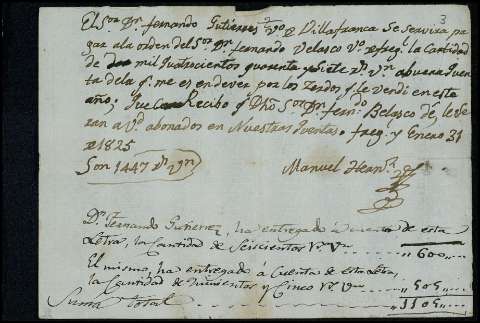 3
El Sor. Dn. fernando Gutierrez Vo. de Villafranca Se Servira pa
gar ala orden del Sor. Dn. fernando Velasco Vo. de freg. la Cantidad
de mil quatrocientos quarenta y siete Rs. Vn. abuena quen
ta dela q. me es endever por los Zerdos q. le Vendi en este
año; Que Con Recibo de Dho Sor. Dn. fernдo Belasco de le se
ran a Vd. abonados en Nuestras quentas. freg. y Enero 31
de 1825
Son 1447 Rs. Vn.
Manuel Hernz.
Dn. Fernando Gutierrez, ha entregado á cuenta de esta
Letra, la Cantidad de Seiscientos Rs. Vn. ,,600,,
El mismo, ha entregado á Cuenta de esta letra,
la Cantidad de quinientos y Cinco Rs. Vn. ,,505,,
Suma total ,,1105,,